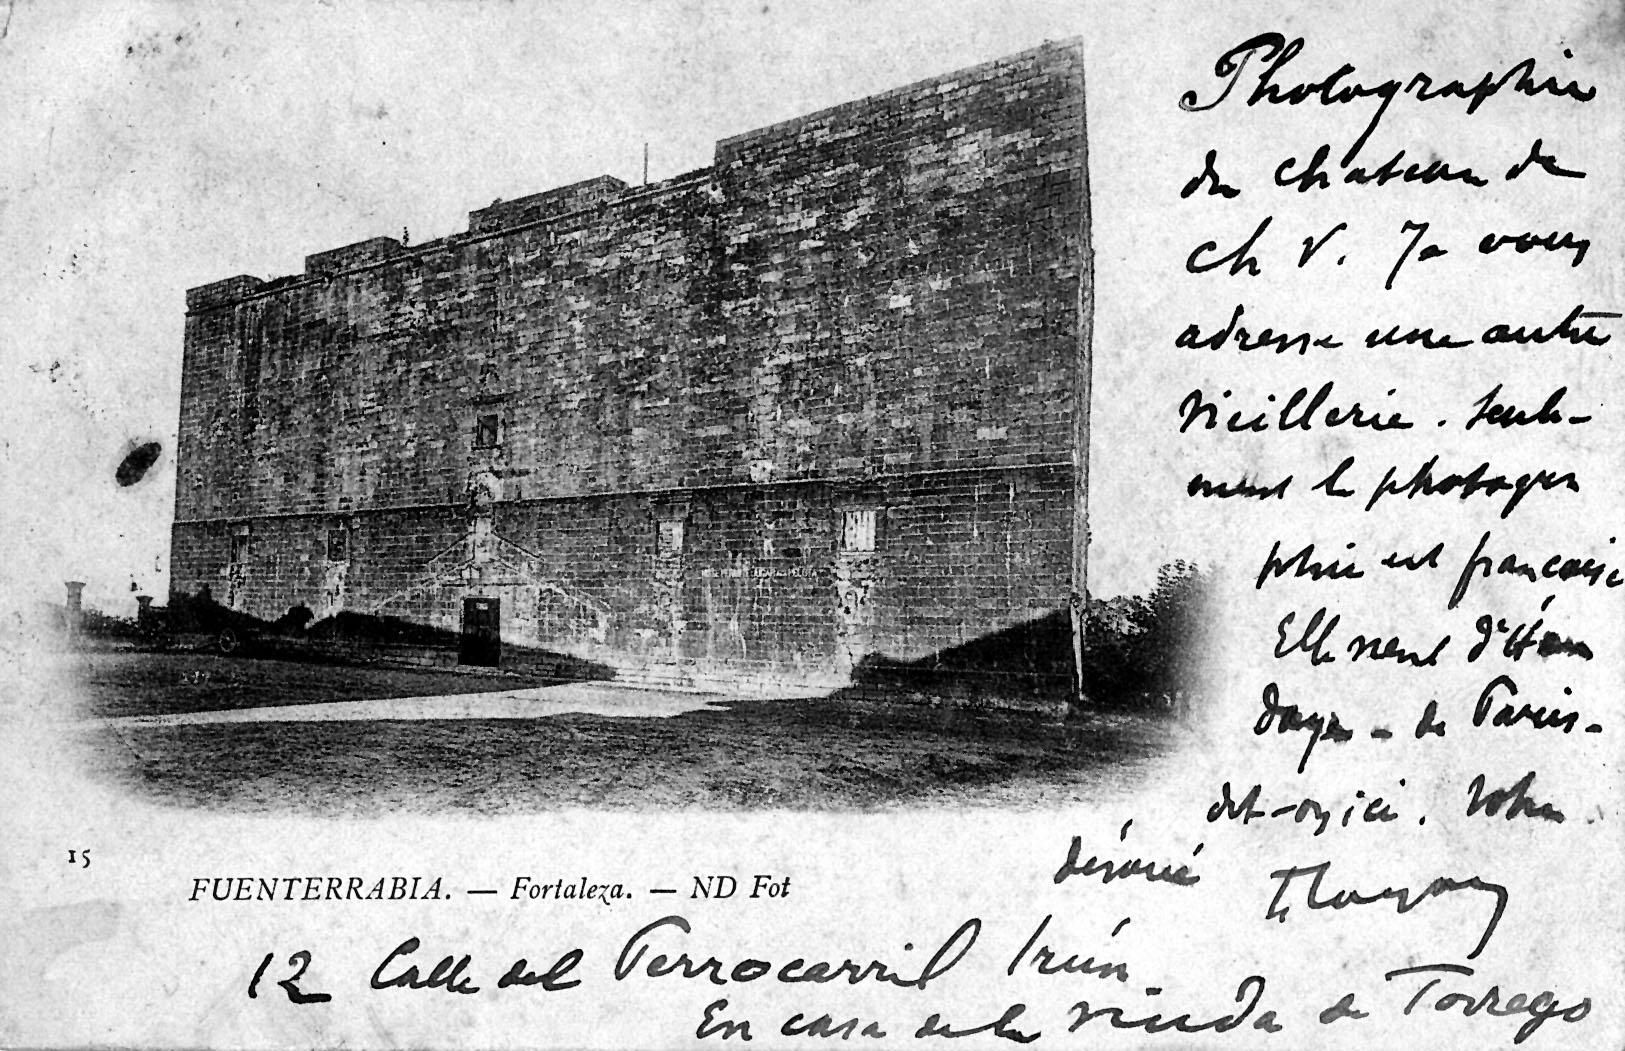 Photographie
du chateau de
ch V. Je vous
adresse une autre
vieillerie. Seule-
ment la photogra
phie est française
Elle vient d'Hen
daye - de Paris -
dit-on ici. Votre
dévoué
15
FUENTERRABIA. — Fortaleza. — ND Fot
12 Calle del Ferrocarril Irún
En casa de la viuda de Torrego